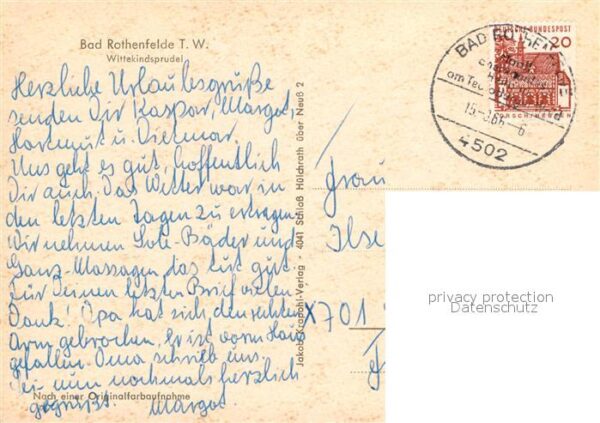 Bad Rothenfelde T. W.
Wittekindsprudel
Herzliche Urlaubsgrüße
senden Dir Kaspar, Margot,
Hartmut u. Dietmar.
Uns geht es gut, hoffentlich
Dir auch. Das Wetter war in
den letzten Tagen zu ertragen.
Wir nehmen Sole-Bäder und
Ganz-Massagen, das tut gut.
Für Deinen letzten Brief vielen
Dank! Opa hat sich den rechten
Arm gebrochen. Er ist vorm Haus
gefallen. Oma schrieb uns.
Sei nun nochmals herzlich
gegrüßt. Margot
Nach einer Originalfarbaufnahme
Jakob Krapohl-Verlag · 4041 Schloß Hülchrath über Neuß 2
DEUTSCHE BUNDESPOST
20
LORSCH/HESSEN
BAD ROTHENFELDE
am Teutoburger
4502
Frau
Ilse
X701
privacy protection
Datenschutz